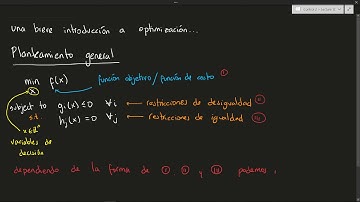 una breve introducción a optimización...
Planteamiento general
min f(x)
x
función objetivo / función de costo I
subject to gi(x) ≤ 0 ∀i → restricciones de desigualdad II
s.t. hj(x) = 0 ∀j → restricciones de igualdad III
x∈ℝⁿ
variables de
decisión
dependiendo de la forma de I II y III podemos